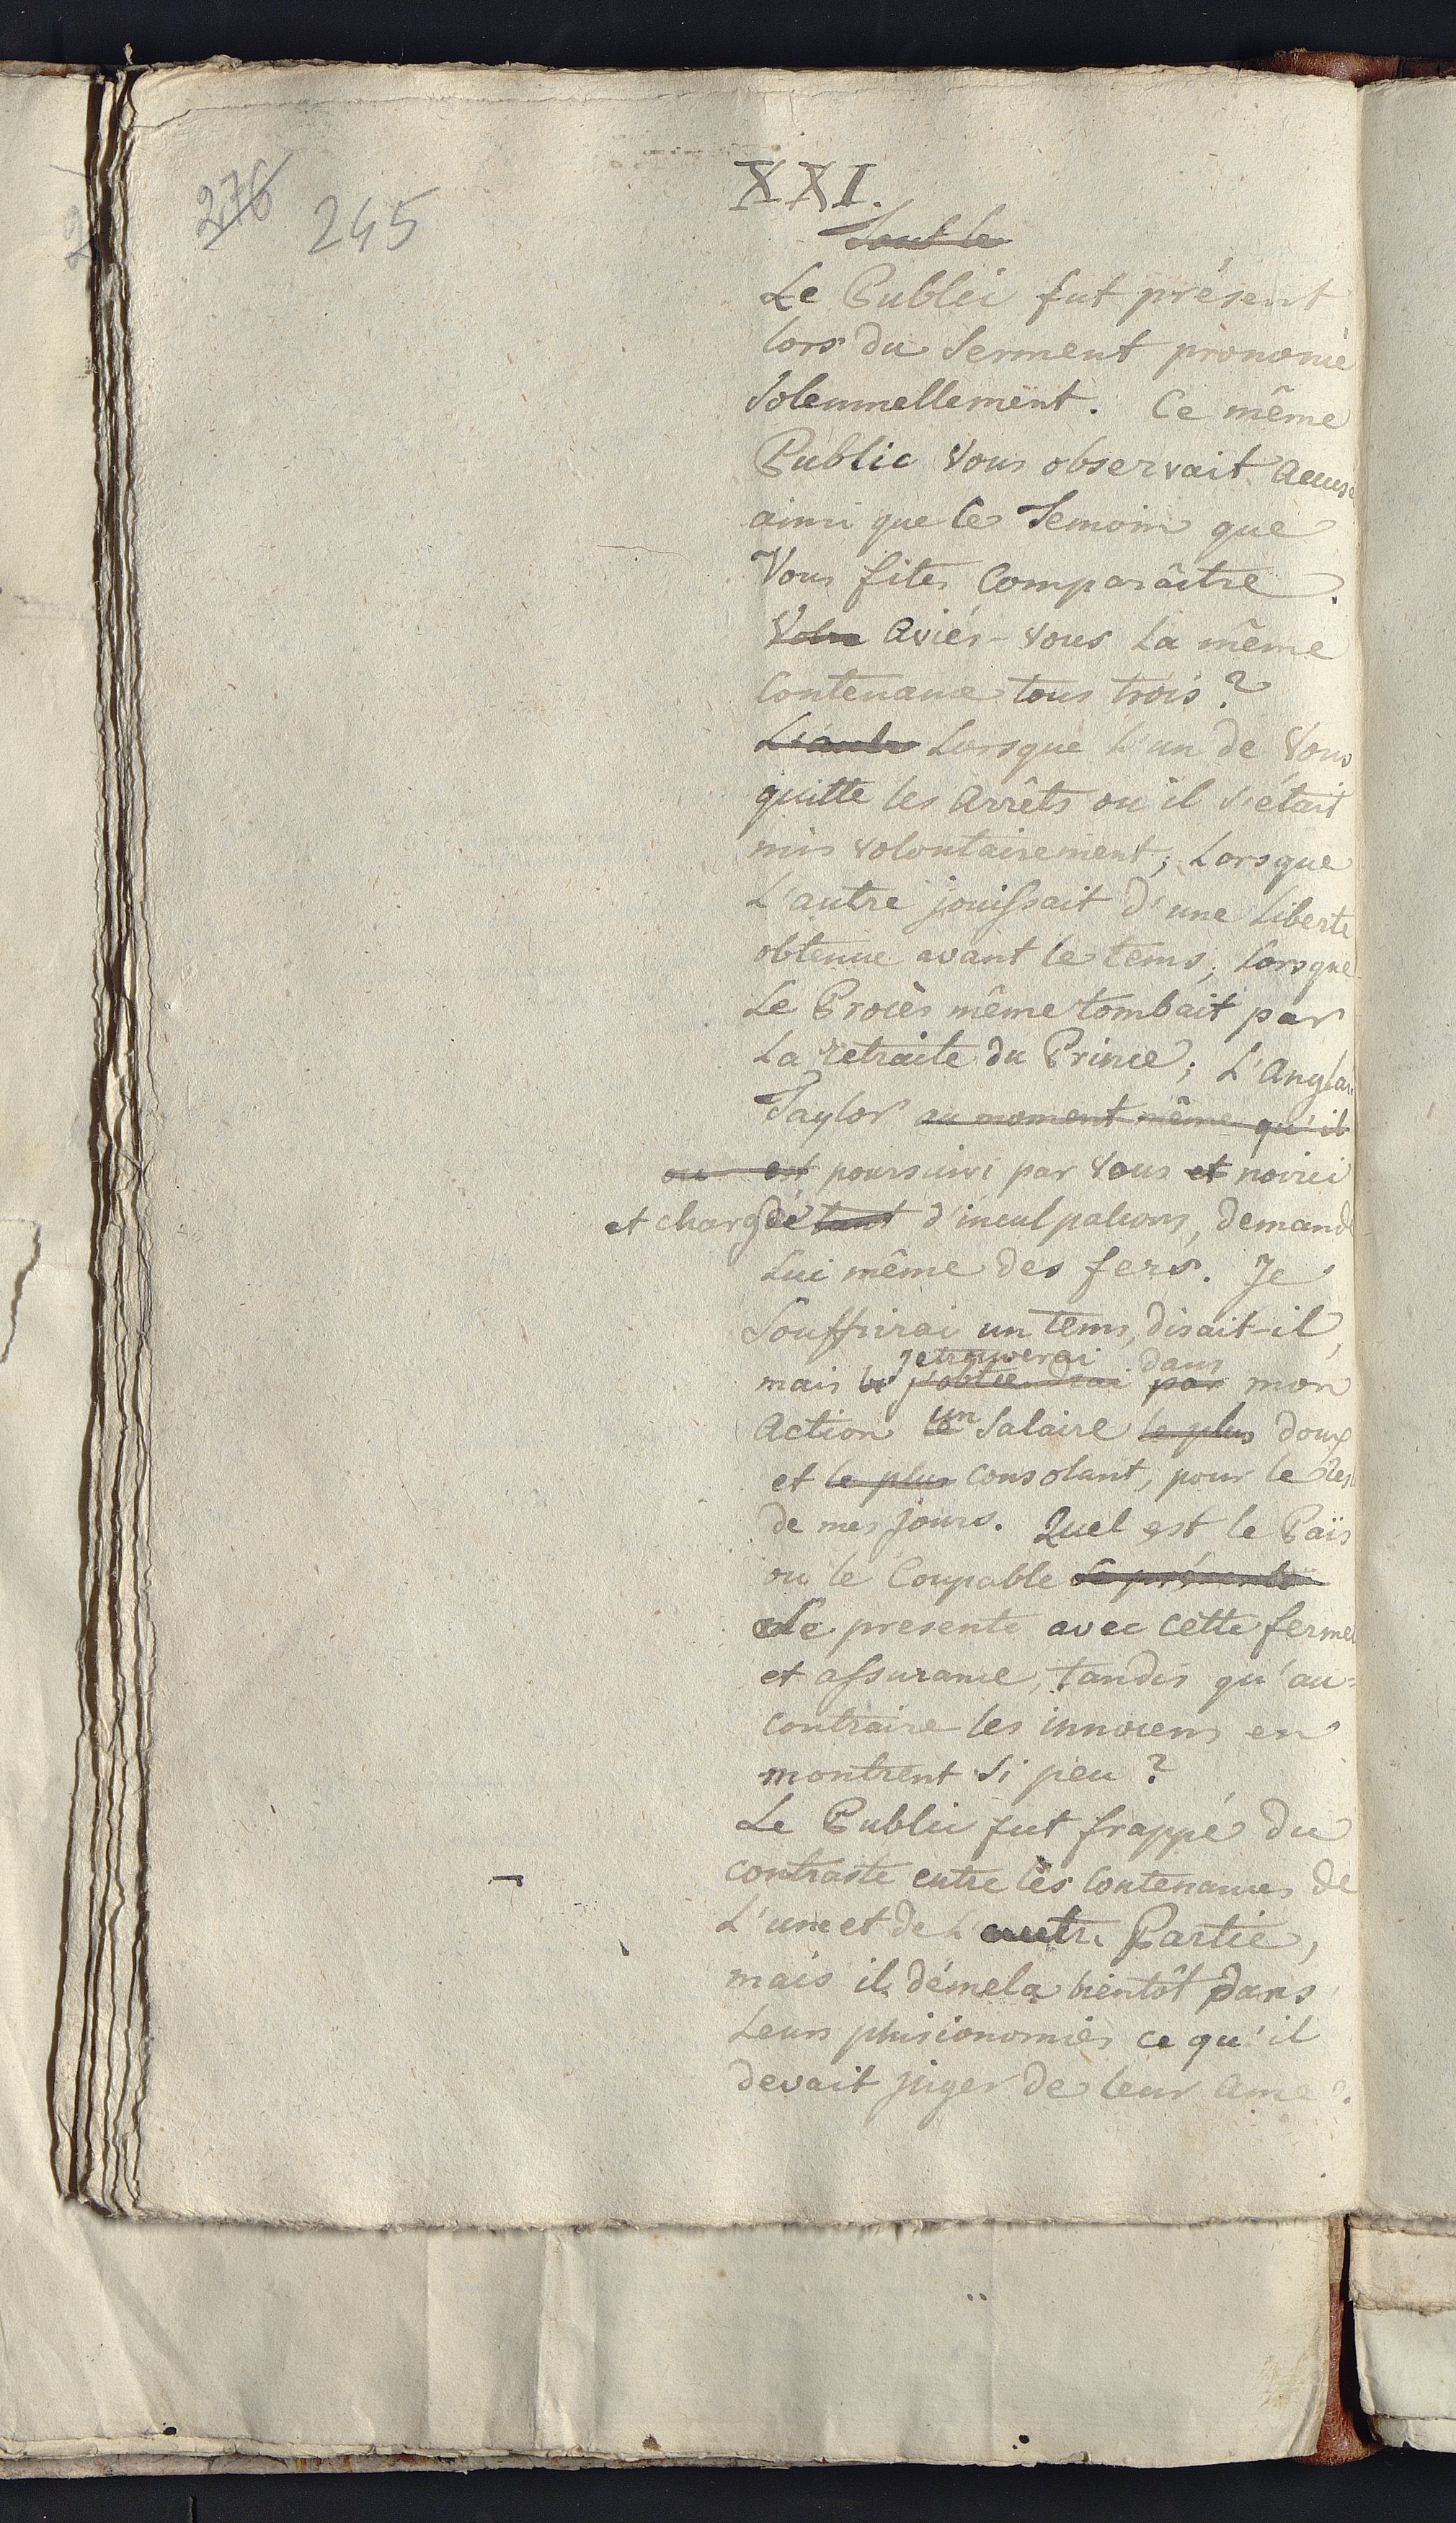 276 245
XXI.
Tout le
Le Public fut présent
lors du Serment prononcé
Solemnellement. Ce même
Public Vous observait Accusé
ainsi que le Temoin que
Vous fites Comparâitre.
Votre Aviés-vous La même
Contenance tous trois?
L'autre Lorsque l'un de Vous
quitte les Arrêts ou il s'était
mis volontairement; Lorsque
L'autre jouissait d'une Liberté
obtenue avant le tems; Lorsque
Le Procès même tombait par
La retraite du Prince; L'Anglai
Taylor au moment même qu'il
ou est poursuivi par Vous et noirci
et chargé de tant d'inculpations, demande
Lui même des fers. Je
Souffrirai un tems, disait-il,
je trouverai dans
mais j'obtiendrai par mon
un
Action le Salaire le plus doux
et le plus consolant, pour le rest
de mes jours. Quel est le Païs
ou le Coupable se présente
Se presente avec cette fermet
et assurance, tandis qu'au-
contraire les innocens en
montrent si peu?
Le Public fut frappé du
contraste entre les Contenances de
L'une et de L'autre Partie,
mais il démela bientôt dans
Leurs phisionomies ce qu'il
devait juger de leur Ame.